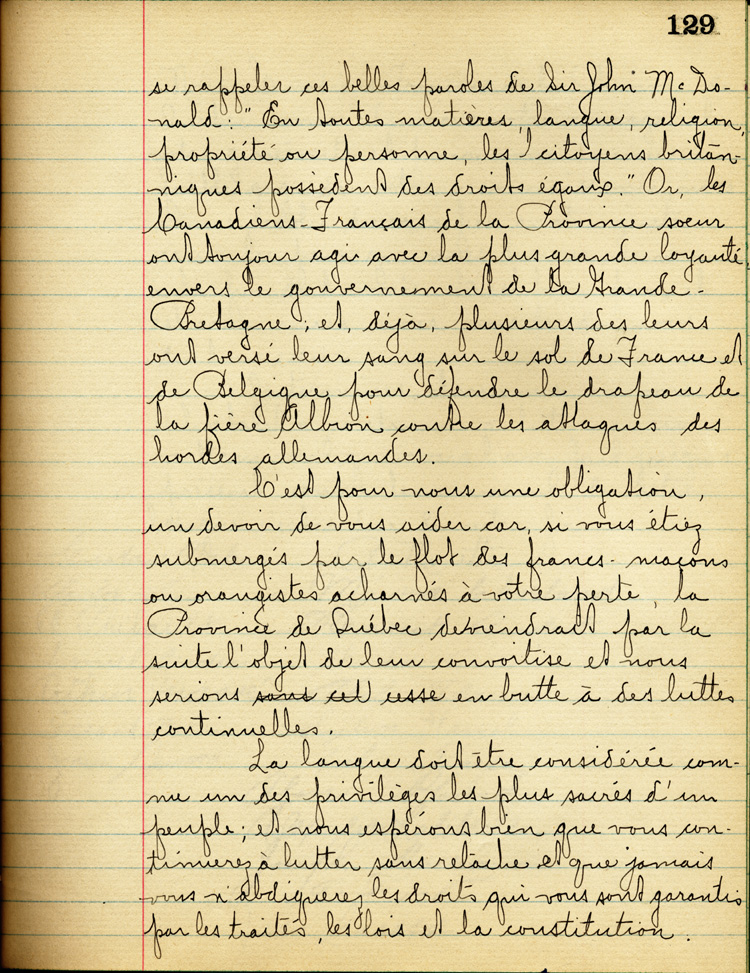 129
se rappeler ces belles paroles de Sir John Mc Do-
nald : " En toutes matières, langue, religion,
propriété ou personne, les citoyens britan-
niques possèdent des droits égaux." Or, les
Canadiens-Français de la Province soeur
ont toujour agi avec la plus grande loyauté
envers le gouvernement de la Grande-
Bretagne ; et, déjà, plusieurs des leurs
ont versé leur sang sur le sol de France et
de Belgique pour défendre le drapeau de
la fière Albion contre les attaques des
hordes allemandes.
C'est pour nous une obligation,
un devoir de vous aider car, si vous étiez
submergés par le flot des francs-maçons
ou orangistes acharnés à votre perte, la
Province de Québec deviendrait par la
suite l'objet de leur convoitise et nous
serions sans cet cesse en butte à des luttes
continuelles.
La langue doit être considérée com-
me un des privilèges les plus sacrés d'un
peuple ; et nous espérons bien que vous con-
tinuerez à lutter sans relâche et que jamais
vous n'abdiquerez les droits qui vous sont garantis
par les traités, les lois et la constitution.